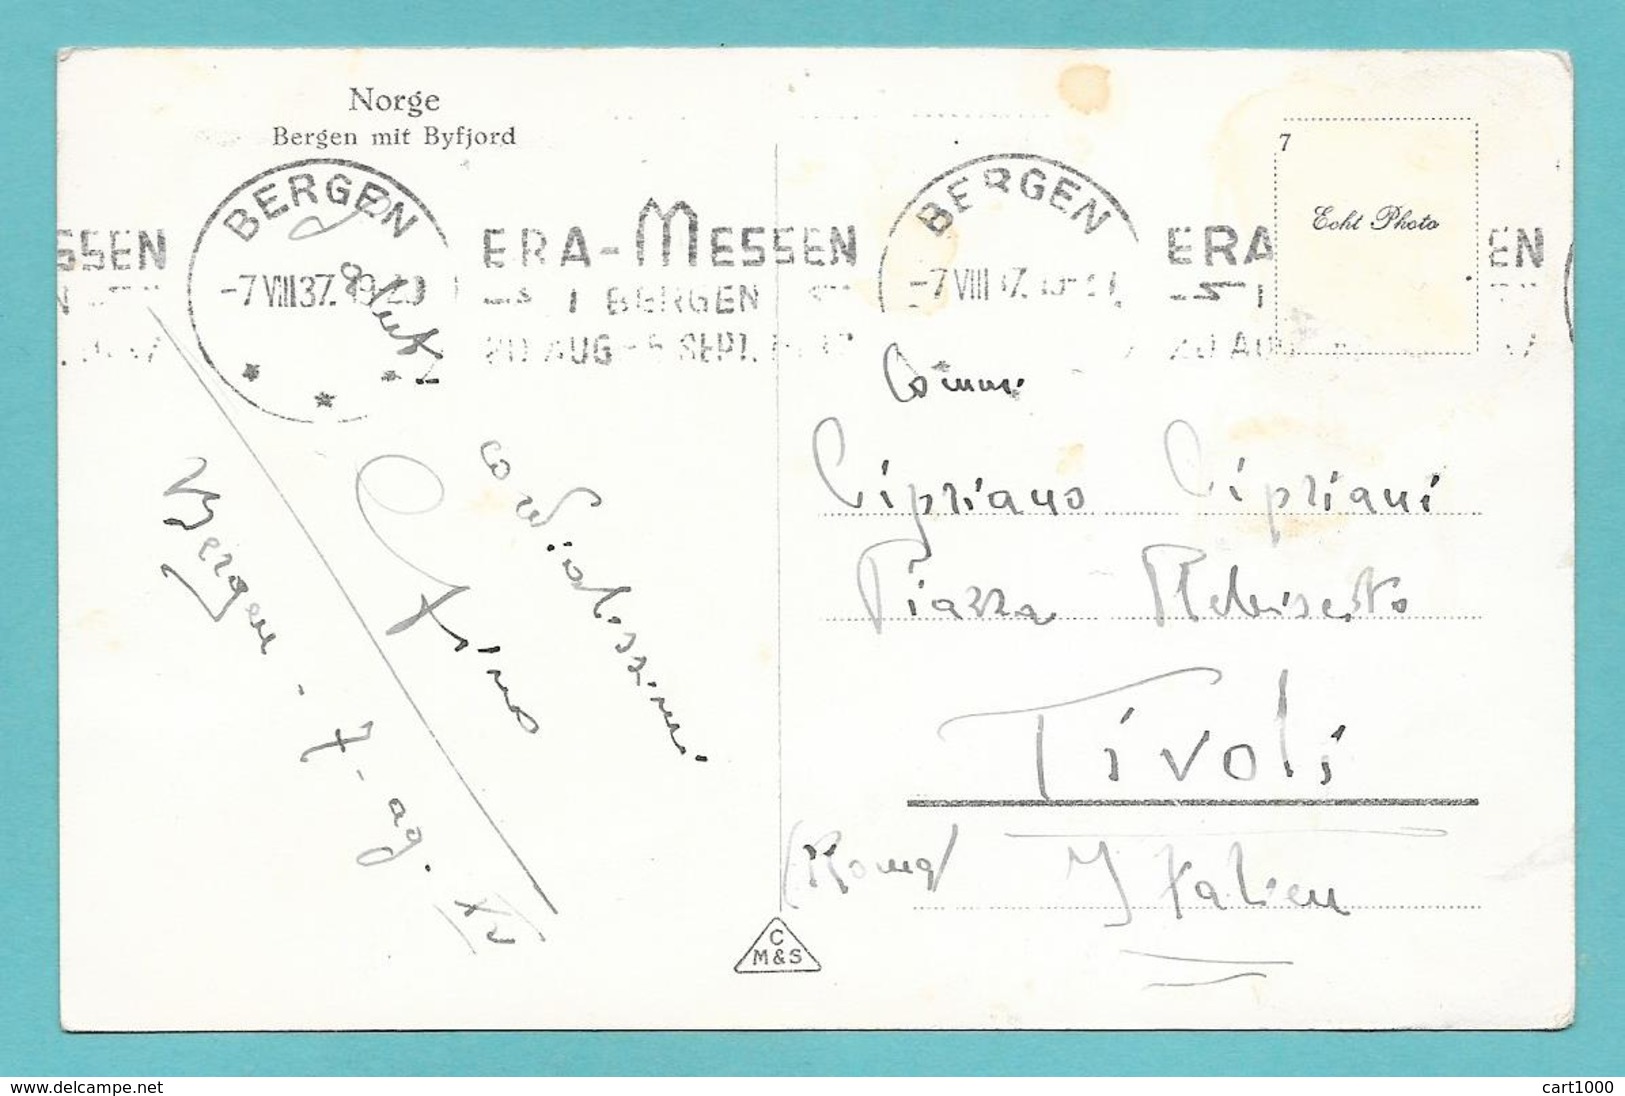 Norge
Bergen mit Byfjord
BERGEN
-7 VIII 37.
ERA-MESSEN
I BERGEN
20 AUG - 5 SEPT.
SSEN
BERGEN
-7 VIII 37.
ERA
EN
20 AUG
7
Echt Photo
cordialissimi
Gino
Bergen - 7 - ag. XV
Comm.
Cipriano Cipriani
Piazza Plebiscito
Tivoli
(Roma) Italien
C
M&S
www.delcampe.net
cart1000